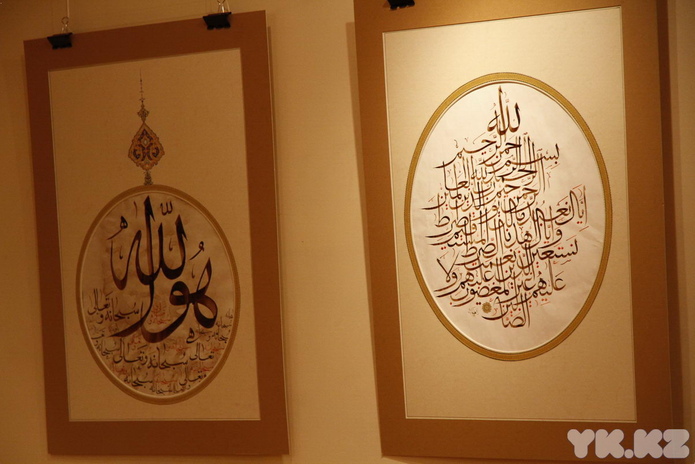 هو الله
سبحانه وتعالى
سبحانه وتعالى
بسم الله الرحمن الرحيم
الحمد لله رب العالمين
الرحمن الرحيم
مالك يوم الدين
إياك نعبد
وإياك نستعين
اهدنا الصراط المستقيم
صراط الذين أنعمت
عليهم غير المغضوب عليهم ولا
الضالين
YK.KZ